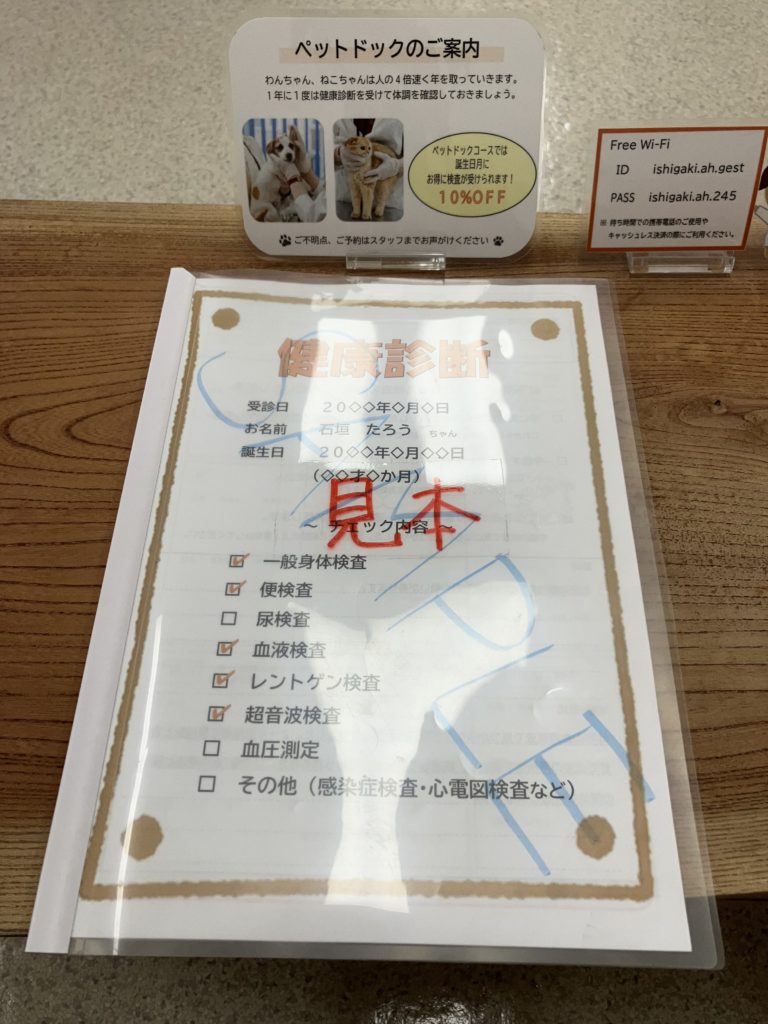 ペットドックのご案内
わんちゃん、ねこちゃんは人の4倍速く年を取っていきます。
1年に1度は健康診断を受けて体調を確認しておきましょう。
ペットドックコースでは
誕生日月に
お得に検査が受けられます!
10%OFF
ご不明点、ご予約はスタッフまでお声がけください
Free Wi-Fi
ID ishigaki.ah.gest
PASS ishigaki.ah.245
※ 待ち時間での携帯電話のご使用や
キャッシュレス決済の際にご利用ください。
健康診断
受診日 20◇◇年◇月◇日
お名前 石垣 たろう ちゃん
誕生日 20◇◇年◇月◇◇日
(◇◇才◇か月)
見本
～ チェック内容 ～
☑ 一般身体検査
☑ 便検査
☐ 尿検査
☑ 血液検査
☑ レントゲン検査
☑ 超音波検査
☐ 血圧測定
☐ その他(感染症検査・心電図検査など)
SAMPLE